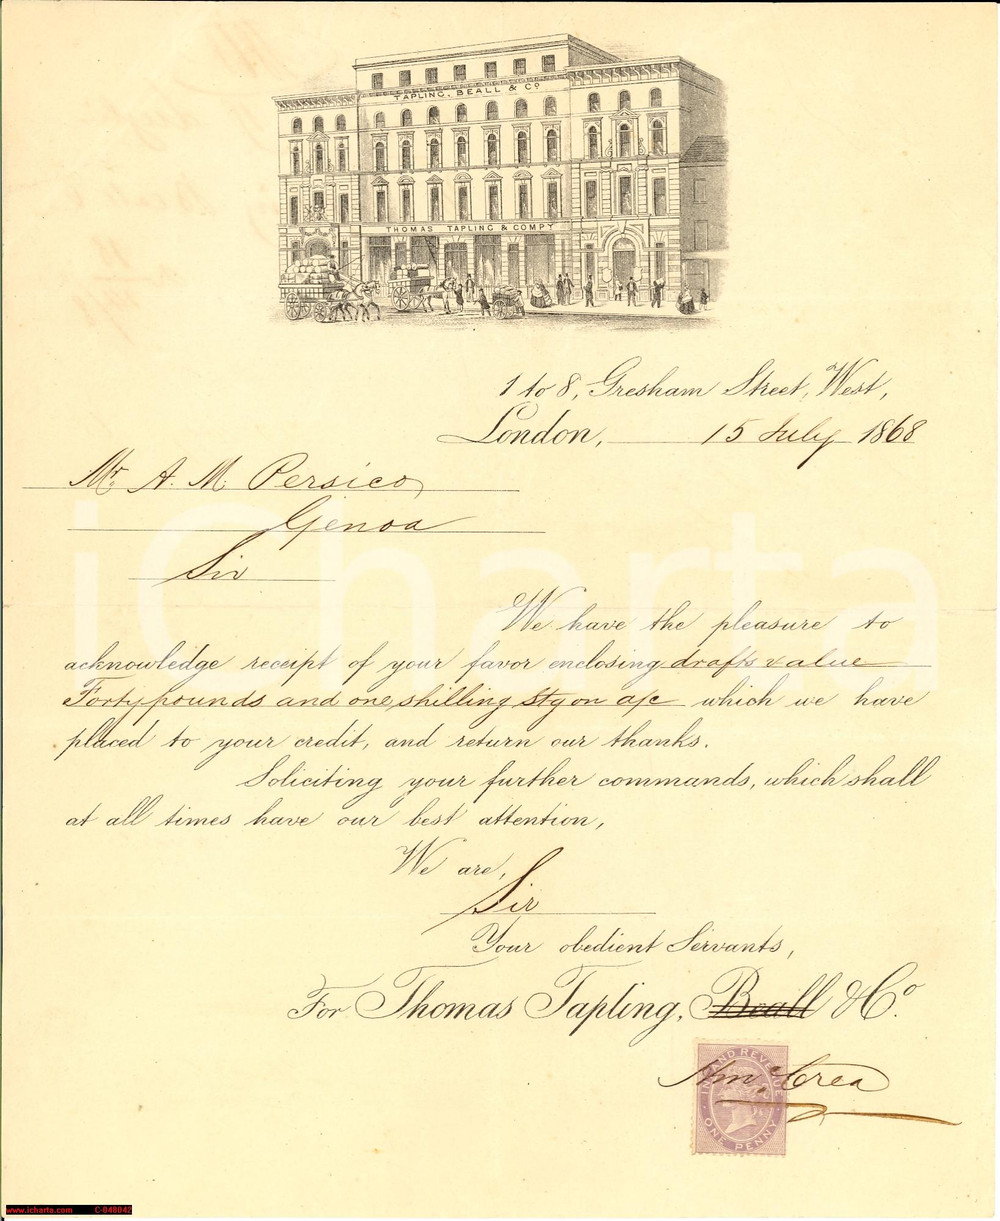 TAPLING, BEALL & Co
THOMAS TAPLING & COMPY
1 to 8, Gresham Street, West,
London, 15 July 1868
Mr A. M. Persico
Genoa
Sir
We have the pleasure to
acknowledge receipt of your favor enclosing drafts value
Forty pounds and one shilling stg on a/c which we have
placed to your credit, and return our thanks.
Soliciting your further commands, which shall
at all times have our best attention,
We are,
Sir
Your obedient Servants,
For Thomas Tapling, Beall & Co.
INLAND REVENUE
ONE PENNY
iCharta
www.icharta.com C-048042